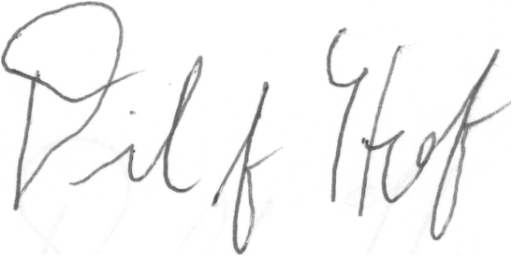 Pilf Hof